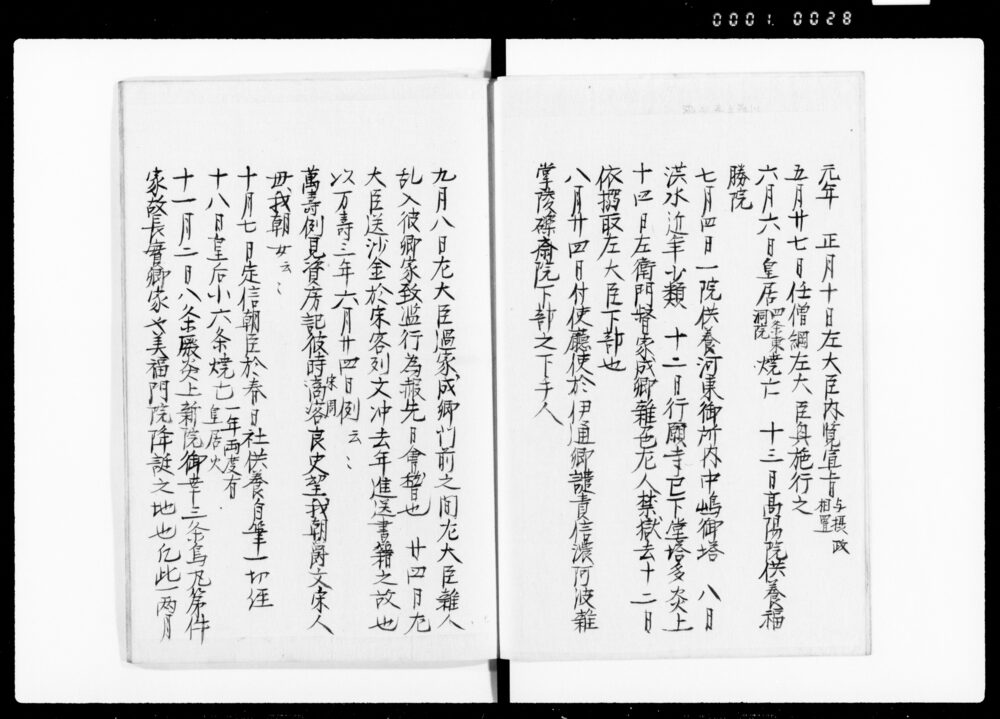 0001.0028
元年 正月十日左大臣内覧宣旨 与摂政
相置
五月廿七日任僧綱左大臣奥施行之
六月六日皇居 四条東 焼亡 十三日高陽院供養福
洞院
勝院
七月四日一院供養河東御所内中嶋御塔 八月
洪水近年少類 十二日行願寺已下堂塔多炎上
十四日左衛門督家成卿雜色九人禁獄去十二日
依搦取左大臣下部也
八月廿四日付使廳使於伊通卿譴責信濃阿波雜
掌陵礫斎院下部之下手人
九月八日左大臣過家成卿門前之間左大臣雜人
乱入彼卿家致濫行為報先日會稽也 廿四日左
大臣送沙金於宋客列文冲去年進送書籍之故也
以万寿三年六月廿四日例云々
萬壽例見資房記彼時 宋周 良史望我朝爵文宋人
毋我朝女云々
十月七日定信朝臣於春日社供養自筆一切経
十八日皇后小六条焼亡 一年両度有
皇居火
十一月二日八条殿炎上新院御幸三条烏丸第件
家故長實卿家也美福門院降誕之地也仍此一両月